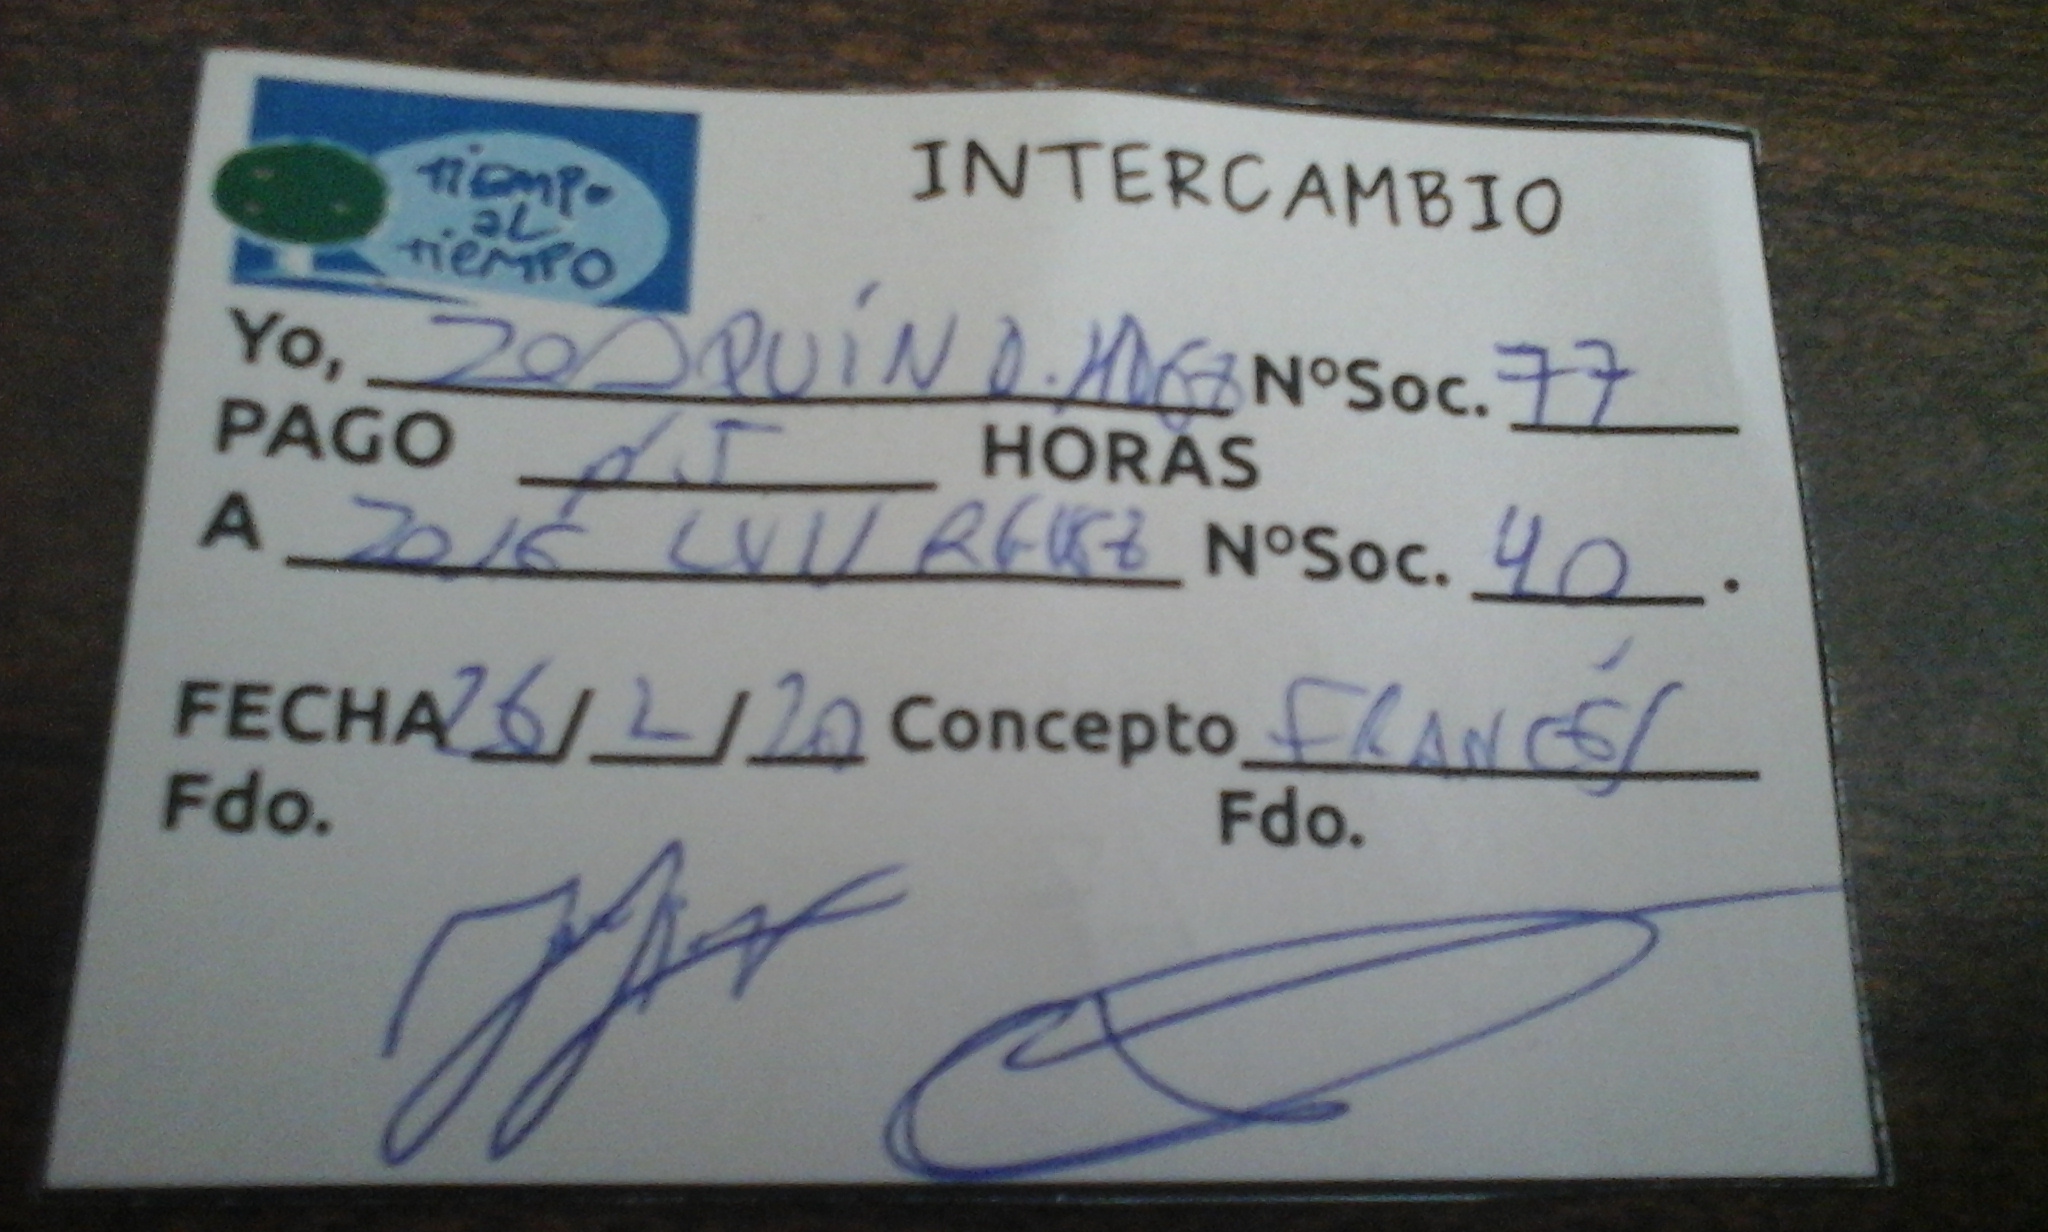 TIEMPO
AL
TIEMPO
INTERCAMBIO
Yo, JOAQUÍN NºSoc. 77
PAGO HORAS
A NºSoc. 40.
FECHA 26/2/20 Concepto FRANCÉS
Fdo. Fdo.